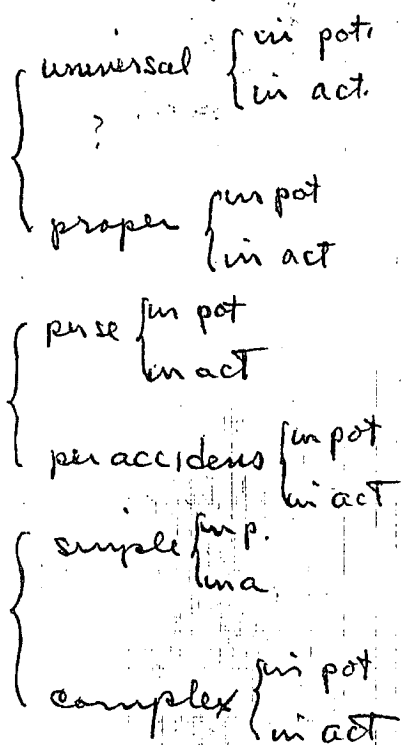 universal { in pot.
in act.
?
proper { in pot
in act
per se { in pot
in act
per accidens { in pot
in act
simple { in p.
in a
complex { in pot
in act